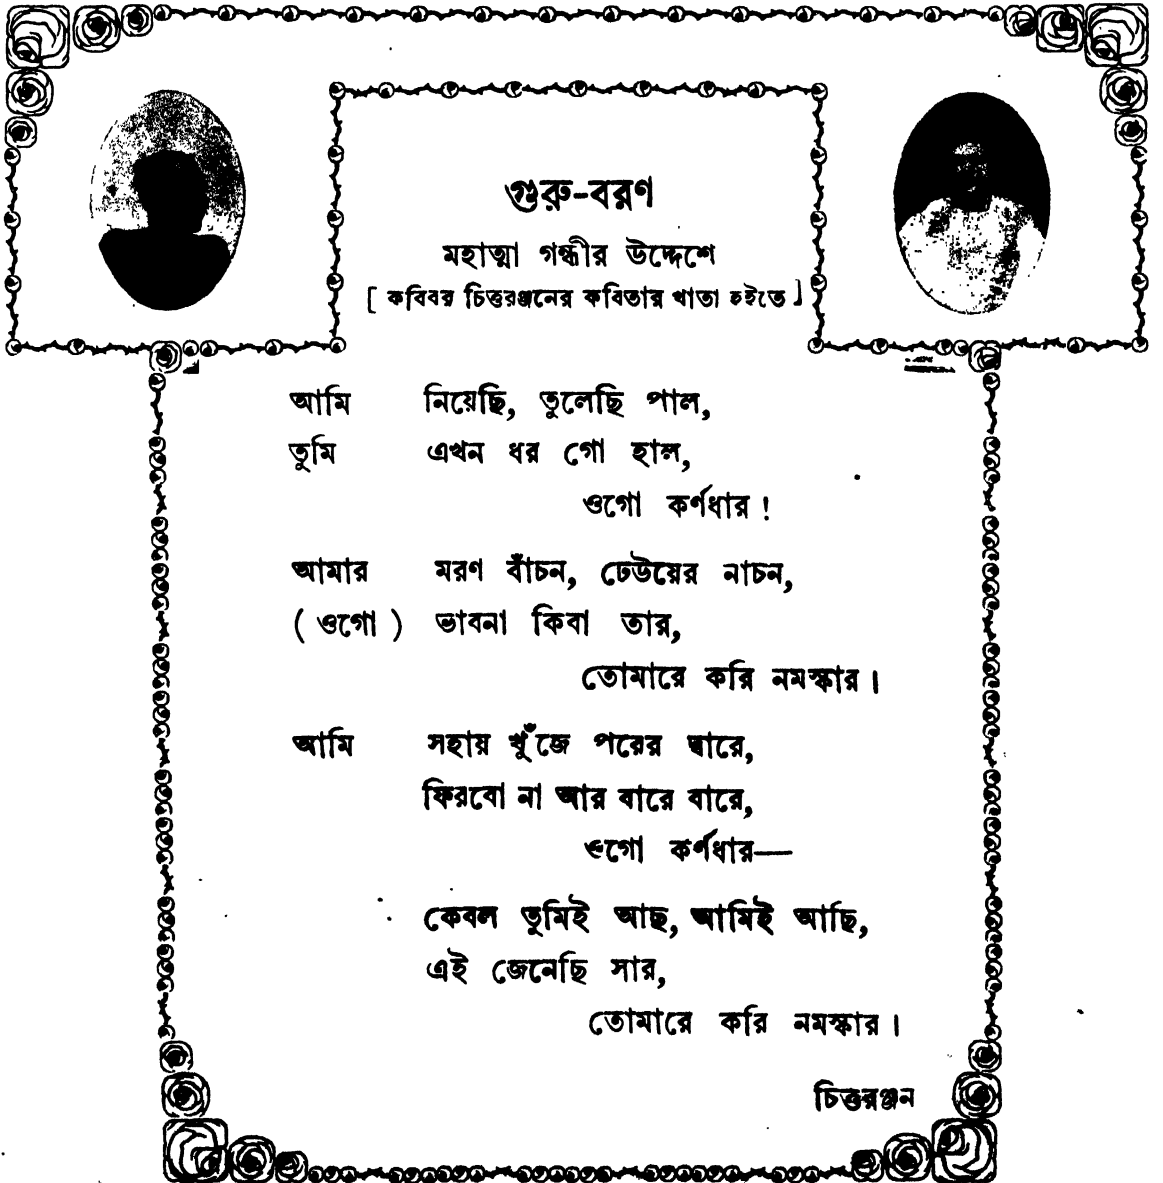 গুরু-বরণ
মহাত্মা গন্ধীর উদ্দেশে
[ কবিবর চিত্তরঞ্জনের কবিতার খাতা হইতে ]
আমি নিয়েছি, তুলেছি পাল,
তুমি এখন ধর গো হাল,
ওগো কর্ণধার !
আমার মরণ বাঁচন, ঢেউয়ের নাচন,
( ওগো ) ভাবনা কিবা তার,
তোমারে করি নমস্কার ।
আমি সহায় খুঁজে পরের দ্বারে,
ফিরবো না আর বারে বারে,
ওগো কর্ণধার—
কেবল তুমিই আছ, আমিই আছি,
এই জেনেছি সার,
তোমারে করি নমস্কার ।
চিত্তরঞ্জন